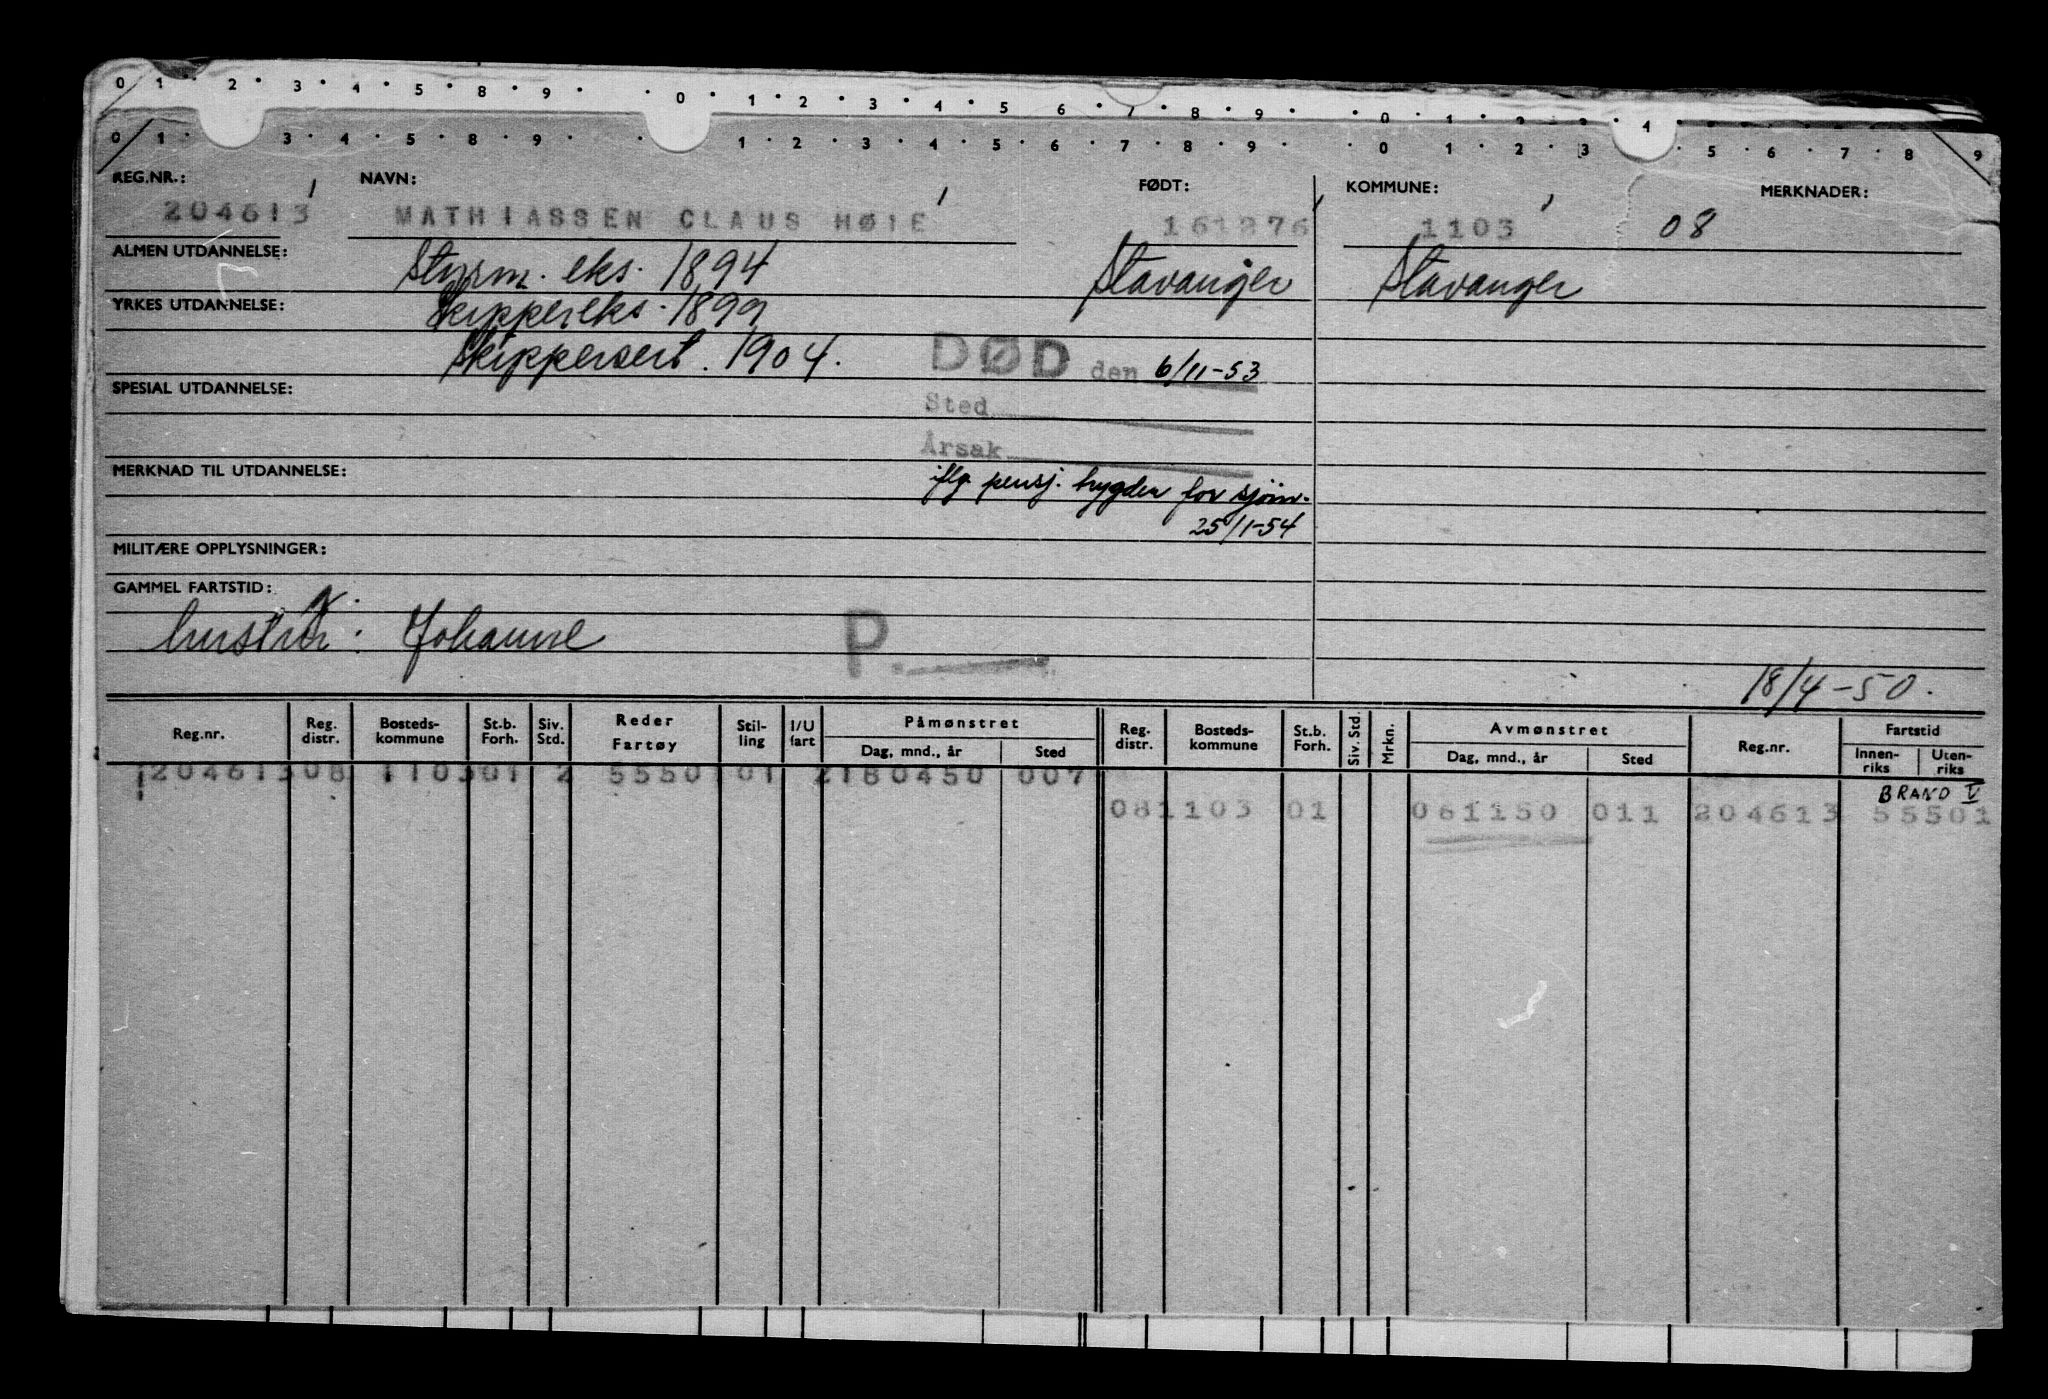 0 1 · 2 · 3 · 4 · 5 · 8 · 9 · · 0 · 1 · 2 · 3 · 4 · 5 6 · 7 · 8 · 9 · · 0 · 1 · 2 · 3 · 4
0 1 · 3 · 4 · 5 · 8 · 9 · · 1 · 2 · 3 · 4 · 5 · 6 · 7 · 8 · 9 · · 0 · 1 · 2 · 3 · 5 · 6 · 7 · 8 · 9
REG.NR.: NAVN: FØDT: KOMMUNE: MERKNADER:
204613 MATHIASSEN CLAUS HØIE 161276 1103 08
ALMEN UTDANNELSE: Styrm. eks. 1894 Stavanger Stavanger
YRKES UTDANNELSE: Skippereks. 1899
Skippersert. 1904. DØD den 6/11-53
SPESIAL UTDANNELSE: Sted
Årsak
MERKNAD TIL UTDANNELSE: iflg. pensj. trygden for sjöm.
25/1-54
MILITÆRE OPPLYSNINGER:
GAMMEL FARTSTID:
hustru: Johanne P.
18/4-50.
Reg.nr. Reg. distr. Bosteds- kommune St.b. Forh. Siv. Std. Reder Fartøy Stil- ling I/U fart Påmønstret Dag, mnd., år Sted Reg. distr. Bosteds- kommune St.b. Forh. Siv. Std. Mrkn. Avmønstret Dag, mnd., år Sted Reg.nr. Fartstid Innen- riks Uten- riks
204613 08 1103 01 2 5550 01 2 180450 007
BRAND V
08 1103 01 061150 011 204613 55501